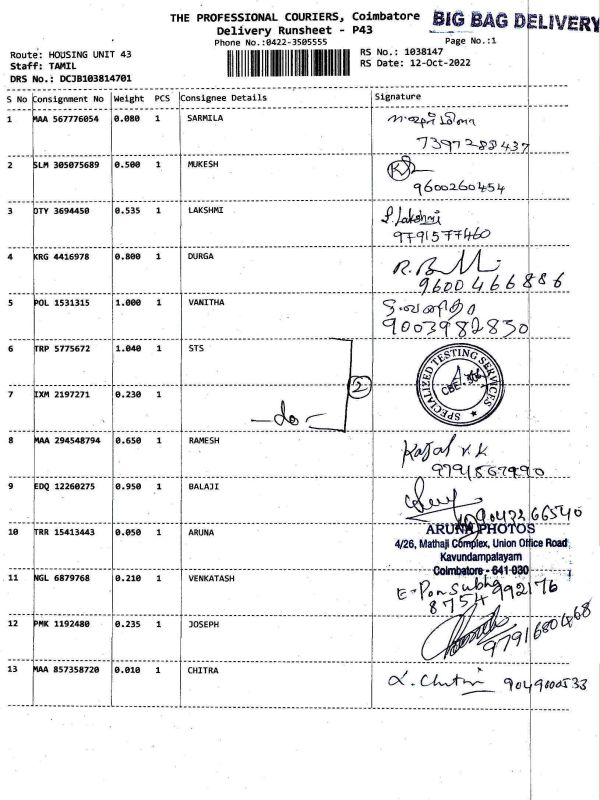 THE PROFESSIONAL COURIERS, Coimbatore
BIG BAG DELIVERY
Delivery Runsheet - P43
Phone No.:0422-3505555
Page No.:1
Route: HOUSING UNIT 43
RS No.: 1038147
Staff: TAMIL
RS Date: 12-Oct-2022
DRS No.: DCJB103814701
S No Consignment No Weight PCS Consignee Details Signature
1 MAA 567776054 0.080 1 SARMILA
7397288437
2 SLM 305075689 0.500 1 MUKESH
9600260454
3 OTY 3694450 0.535 1 LAKSHMI L. Lakshmi
9791577460
4 KRG 4416978 0.800 1 DURGA
9600466886
5 POL 1531315 1.000 1 VANITHA
9003982830
6 TRP 5775672 1.040 1 STS
SPECIALIZED TESTING SERVICES
2
7 IXM 2197271 0.230 1 -do-
8 MAA 294548794 0.650 1 RAMESH
9 EDQ 12260275 0.950 1 BALAJI
10 TRR 15413443 0.050 1 ARUNA
ARUNA PHOTOS
4/26, Mathaji Complex, Union Office Road
Kavundampalayam
Coimbatore - 641 030
11 NGL 6879768 0.210 1 VENKATASH
8754992176
12 PMK 1192480 0.235 1 JOSEPH
9791680468
13 MAA 857358720 0.010 1 CHITRA 9049000533